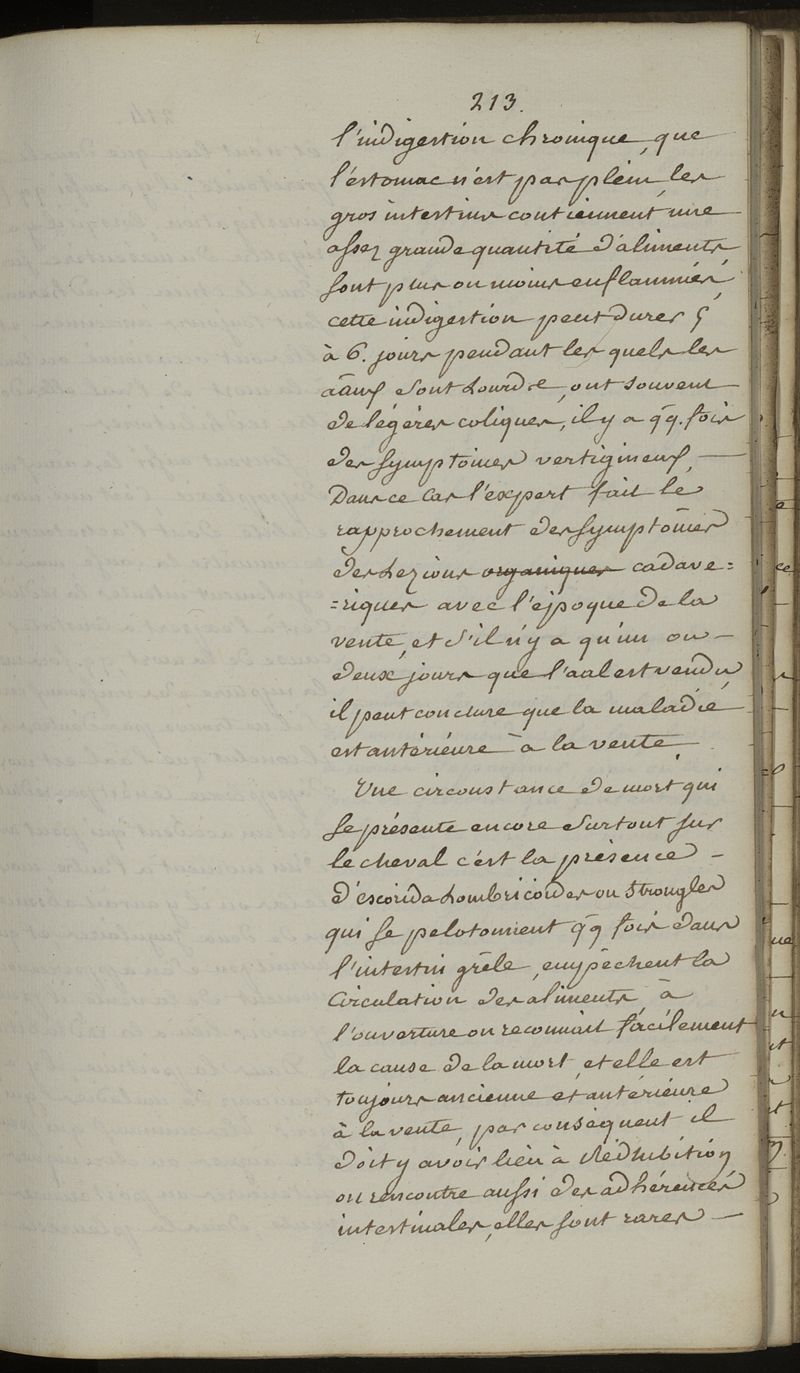 213.
l'indigestion chronique, que
l'éstomac n'est pas plein, les
gros intestins contiennent une
assez grande quantité d'aliments
sont plus ou moins enflammés,
cette indigestion peut durer 5
à 6. jours pendant les quels les
aāux sont Lourds, ont souvent
de légéres coliques, il y a q̄q. fois
des symptômes vertigineux, —
Dans ce Cas l'expert fait le
rapprochement des symptômes
des Lezions organiques cadave=
=riques avec l'époque de la
vente, et s'il n'y a qu'un ou —
deux jours que l'aal est vendu,
il peut conclure que la maladie
est antérieure à la vente.
Une circonstance de mort qui
se présente encore surtout sur
le cheval c'est la présence —
d'escorida Lombricoïdes ou Strongles
qui se pelotonnent q̄q fois dans
l'intestin grêle, empêchent la
Circulation des aliments, à
l'ouverture on reconnait facilement
la cause de la mort, et elle est
toujours ancienne et antérieure
à la vente, par conséquent il
doit y avoir lieu à Rédhibition
on rencontre aussi des adhérences
intestinales, elles sont rares —